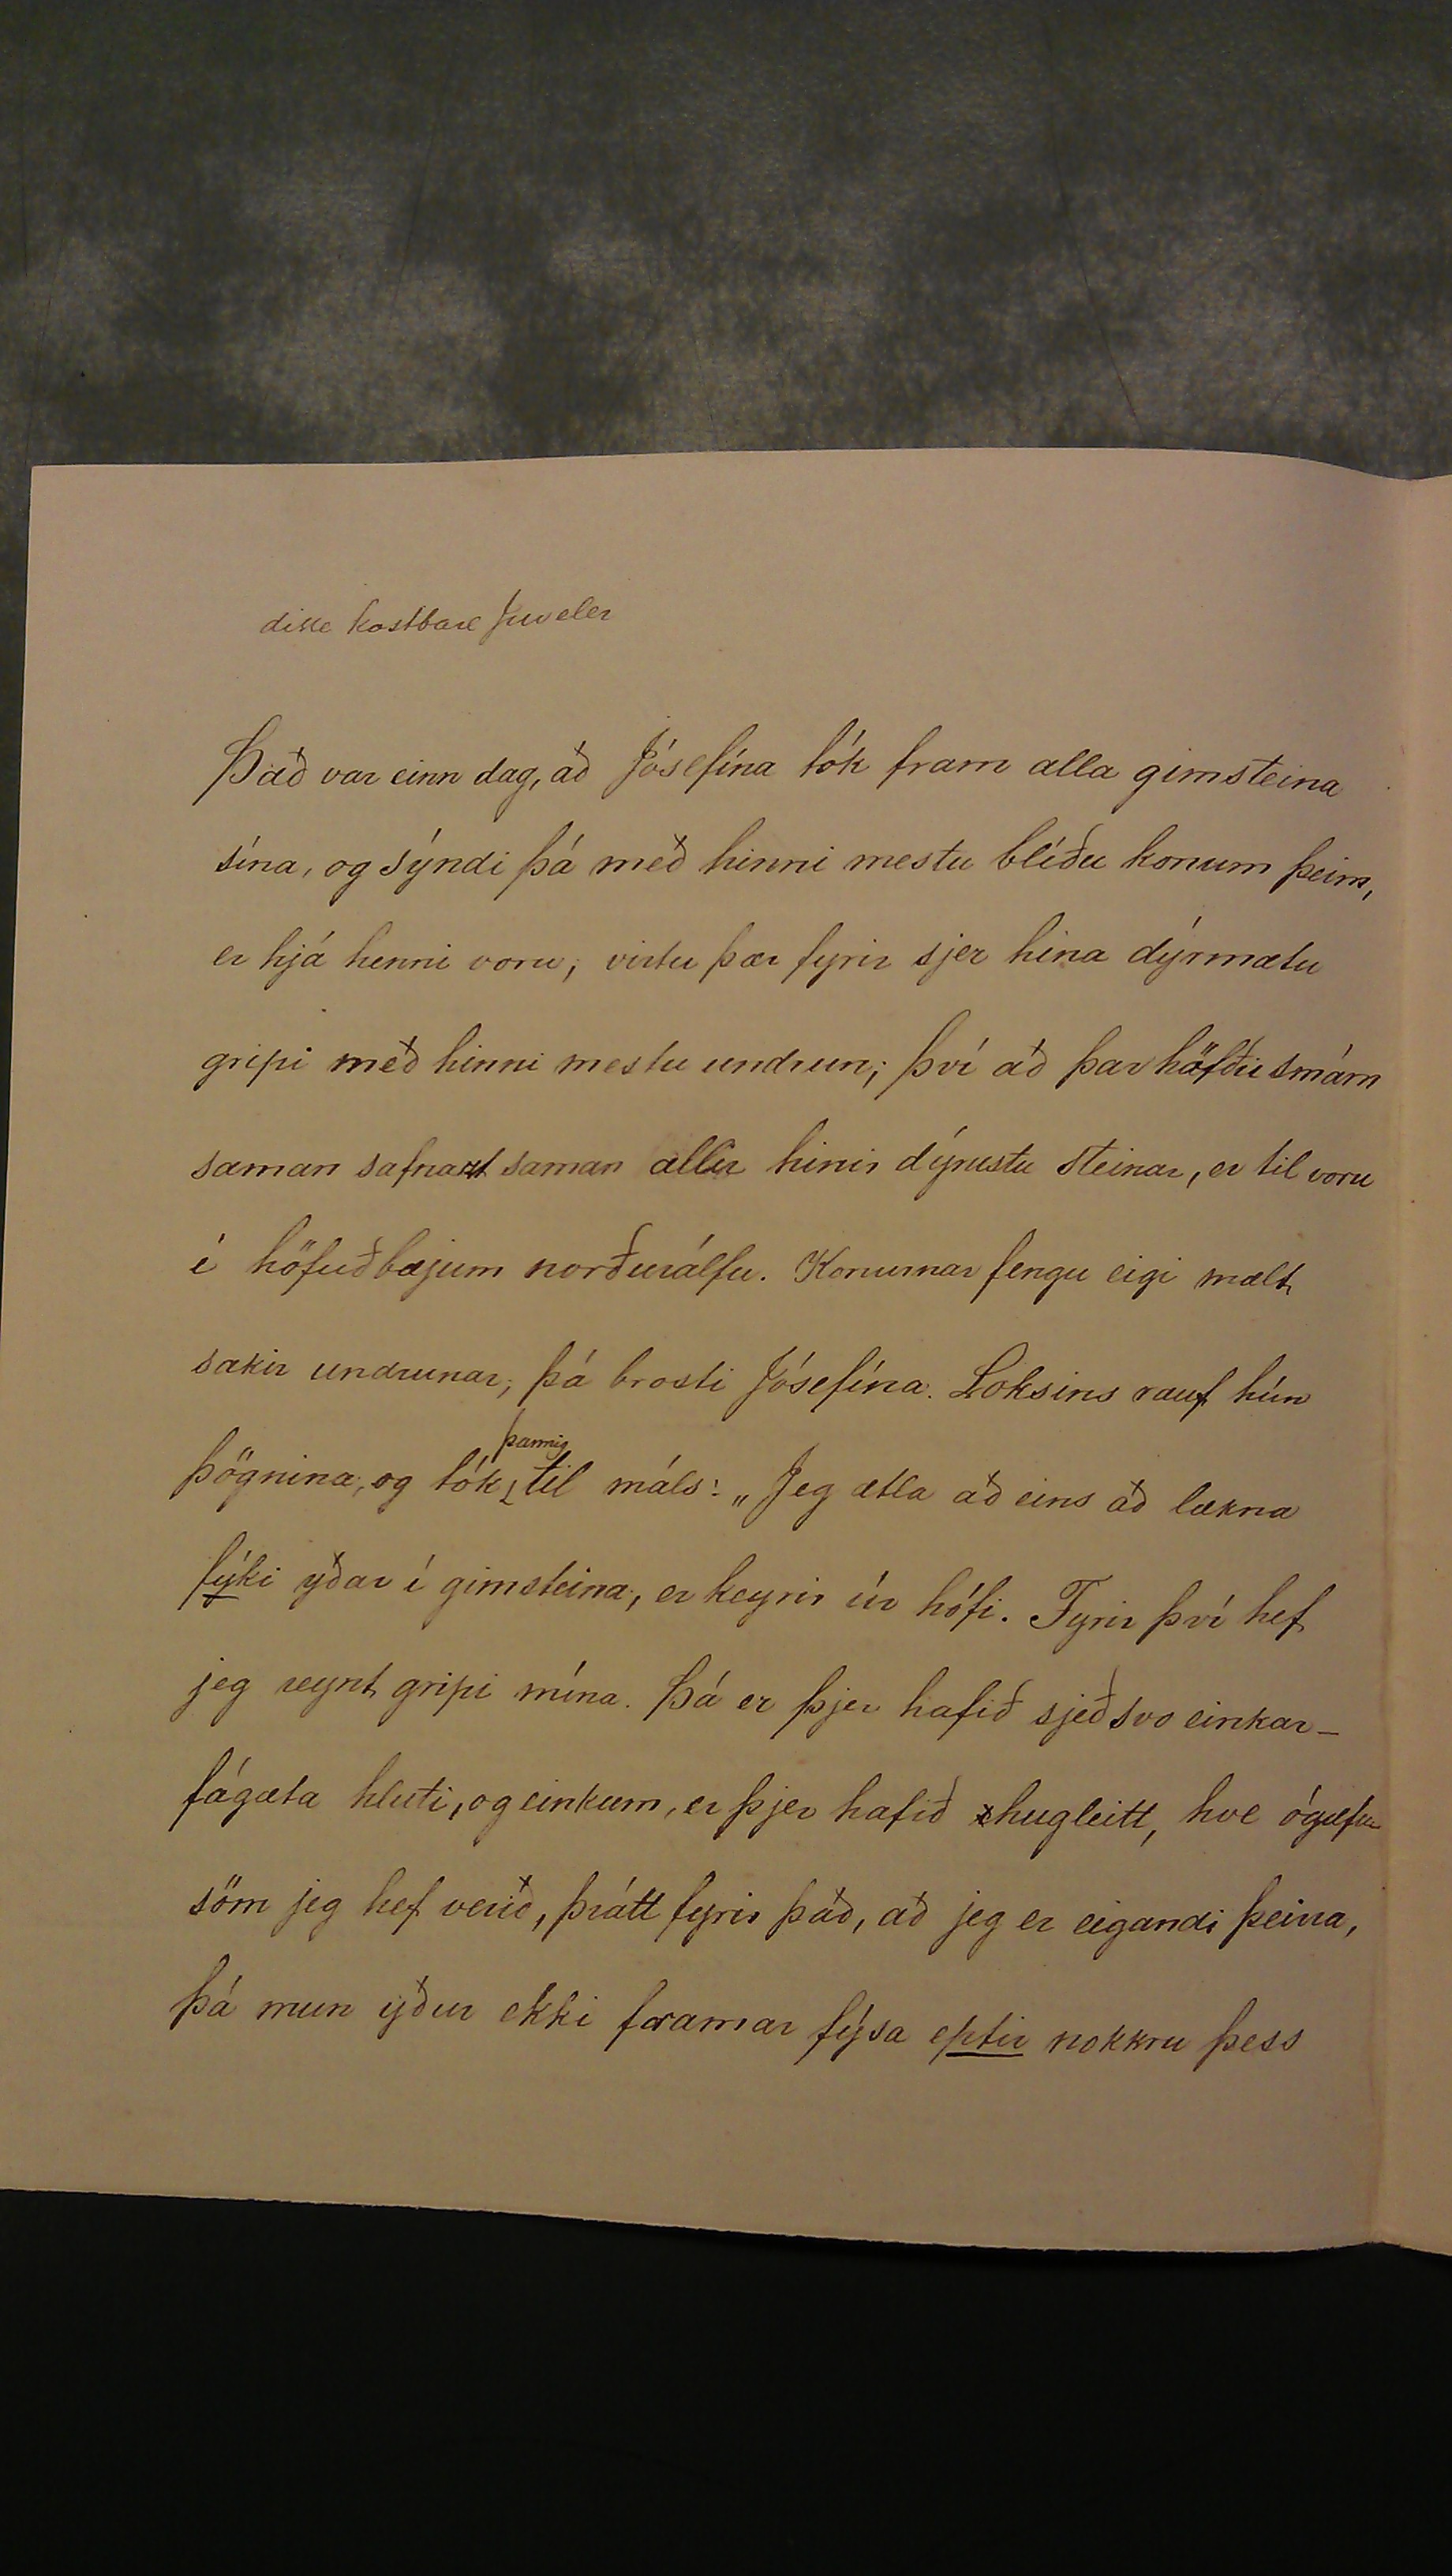 disse kostbare Juveler
Það var einn dag, að Jósefína tók fram alla gimsteina
sína, og sýndi þá með hinni mestu blíðu konum þeim,
er hjá henni voru; virtu þær fyrir sjer hina dýrmætu
gripi með hinni mestu undrun; því að þar höfðu smám
saman safnazt saman allir hinir dýrustu steinar, er til voru
í höfuðbæjum norðurálfu. Konurnar fengu eigi mælt
sakir undrunar; þá brosti Jósefína. Loksins rauf hún
þögnina, og tók þannig til máls: „Jeg ætla að eins að lækna
fýki yðar í gimsteina, er keyrir úr hófi. Fyrir því hef
jeg reynt gripi mína. Þá er þjer hafið sjeð svo einkar-
fágæta hluti, og einkum, er þjer hafið hugleitt, hve ógæfu
söm jeg hef verið, þrátt fyrir það, að jeg er eigandi þeirra,
þá mun yður ekki framar fýsa eptir nokkru þess